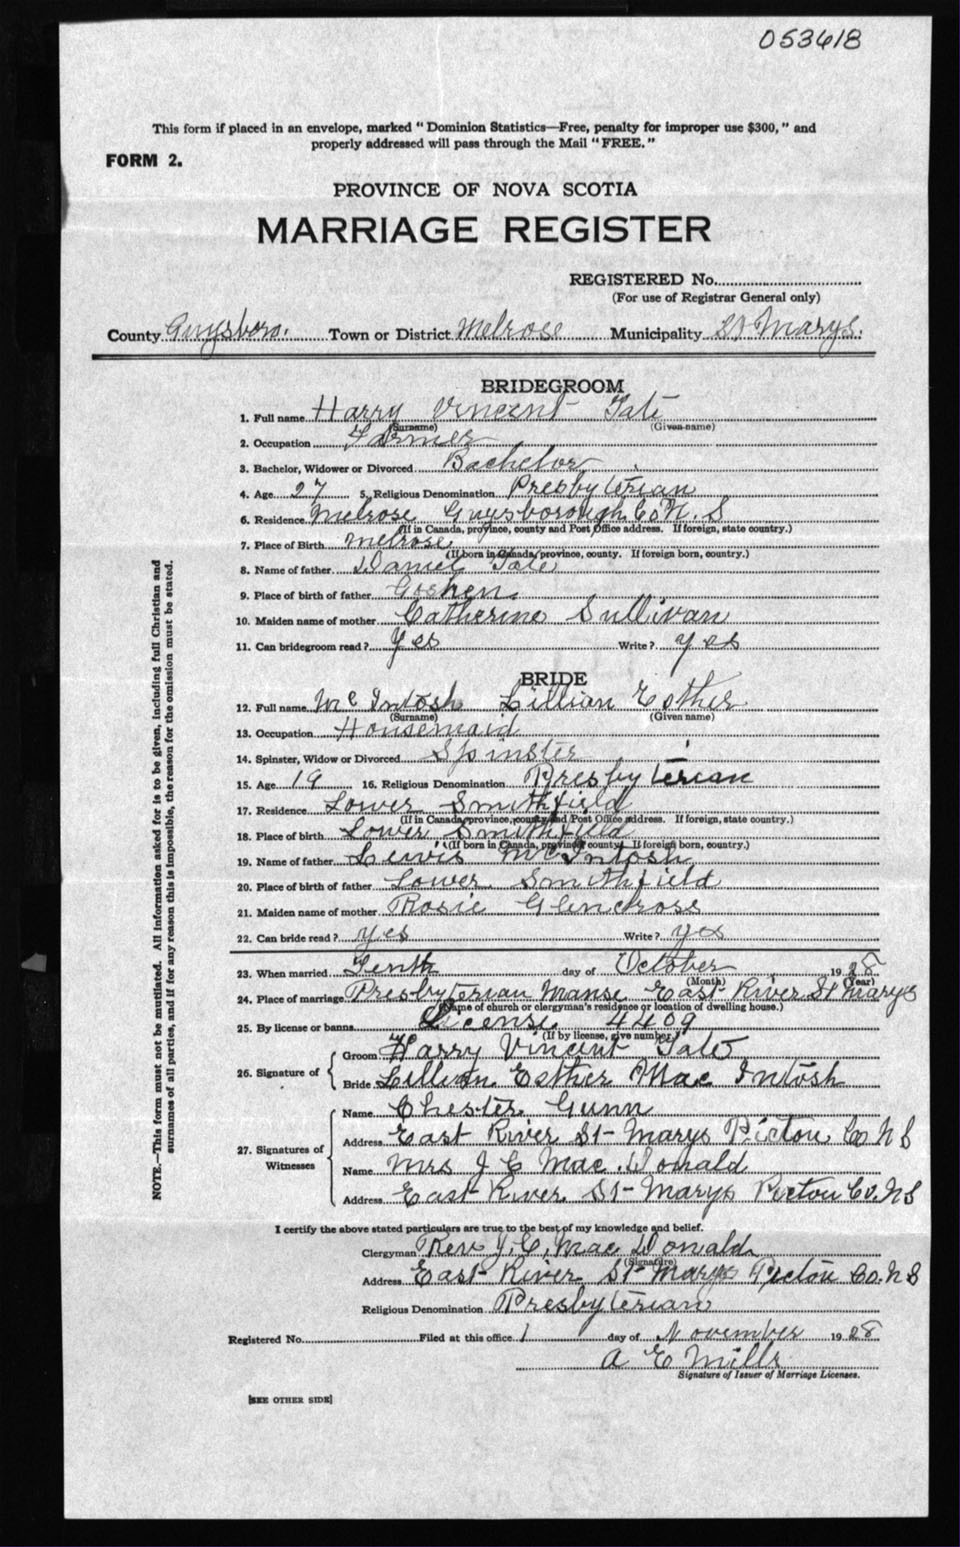 053618
This form if placed in an envelope, marked "Dominion Statistics—Free, penalty for improper use $300," and
properly addressed will pass through the Mail "FREE."
FORM 2.
PROVINCE OF NOVA SCOTIA
MARRIAGE REGISTER
REGISTERED No.
(For use of Registrar General only)
County Guysboro. Town or District Melrose Municipality St Marys.
BRIDEGROOM
1. Full name Harry Vincent Tate
(Surname) (Given name)
2. Occupation Farmer
3. Bachelor, Widower or Divorced Bachelor
4. Age 27 5. Religious Denomination Presbyterian
6. Residence Melrose Guysborough Co N. S
(If in Canada, province, county and Post Office address. If foreign, state country.)
7. Place of Birth Melrose
(If born in Canada, province, county. If foreign born, country.)
8. Name of father Daniel Tate
9. Place of birth of father Goshen
10. Maiden name of mother Catherine Sullivan
11. Can bridegroom read? Yes Write? yes
BRIDE
12. Full name McIntosh Lillian Esther
(Surname) (Given name)
13. Occupation Housemaid
14. Spinster, Widow or Divorced Spinster
15. Age 19 16. Religious Denomination Presbyterian
17. Residence Lower Smithfield
(If in Canada, province, county and Post Office address. If foreign, state country.)
18. Place of birth Lower Smithfield
(If born in Canada, province, county. If foreign born, country.)
19. Name of father Lewis McIntosh
20. Place of birth of father Lower Smithfield
21. Maiden name of mother Rosie Glencross
22. Can bride read? yes Write? yes
23. When married Tenth day of October 1928
(Month) (Year)
24. Place of marriage Presbyterian Manse East River St Marys
(Name of church or clergyman's residence or location of dwelling house.)
25. By license or banns License 4409
(If by license, give number.)
26. Signature of
Groom Harry Vincent Tate
Bride Lillian Esther Mac Intosh
27. Signatures of Witnesses
Name Chester Gunn
Address East River St-Marys Pictou Co N S
Name Mrs J C Mac Donald
Address East River St-Marys Pictou Co. N S
I certify the above stated particulars are true to the best of my knowledge and belief.
Clergyman Rev J. C. Mac Donald
(Signature)
Address East River St-Marys Pictou Co. N S
Religious Denomination Presbyterian
Registered No. Filed at this office 1 day of November 1928
A E Mills
Signature of Issuer of Marriage Licenses.
[SEE OTHER SIDE]
NOTE.—This form must not be mutilated. All information asked for is to be given, including full Christian and
surnames of all parties, and if for any reason this is impossible, the reason for the omission must be stated.